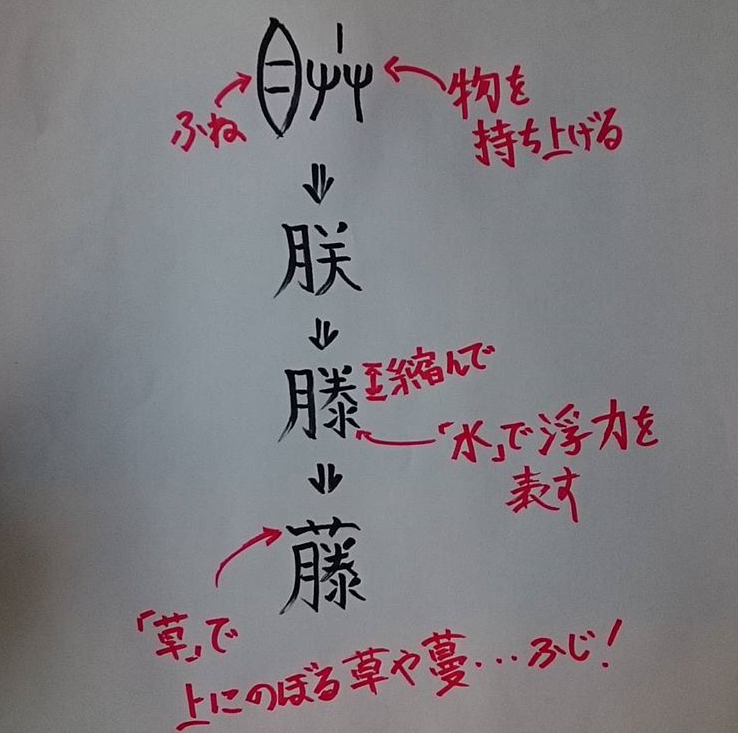 ふね
物を
持ち上げる
⇓
朕
⇓
縮んで
滕
「水」で浮力を
表す
⇓
藤
「草」で
上にのぼる草や蔓…ふじ！